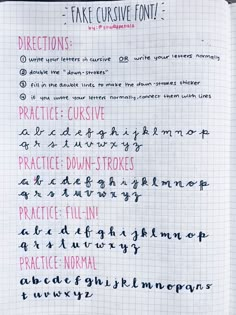 FAKE CURSIVE FONT!
DIRECTIONS:
① write your letters in cursive OR write your letters normally
② double the "down-strokes"
③ fill in the double lines to make the down-strokes thicker
④ if you wrote your letters normally, connect them with lines
PRACTICE: CURSIVE
a b c d e f g h i j k l m n o p
q r s t u v w x y z
PRACTICE: DOWN-STROKES
a b c d e f g h i j k l m n o p
q r s t u v w x y z
PRACTICE: FILL-IN!
a b c d e f g h i j k l m n o p
q r s t u v w x y z
PRACTICE: NORMAL
a b c d e f g h i j k l m n o p q r s
t u v w x y z